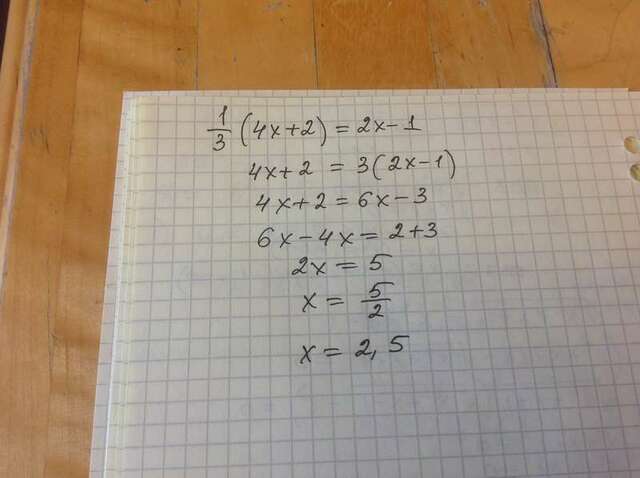 1/3 (4x+2) = 2x-1
4x+2 = 3(2x-1)
4x+2 = 6x-3
6x-4x = 2+3
2x = 5
x = 5/2
x = 2,5